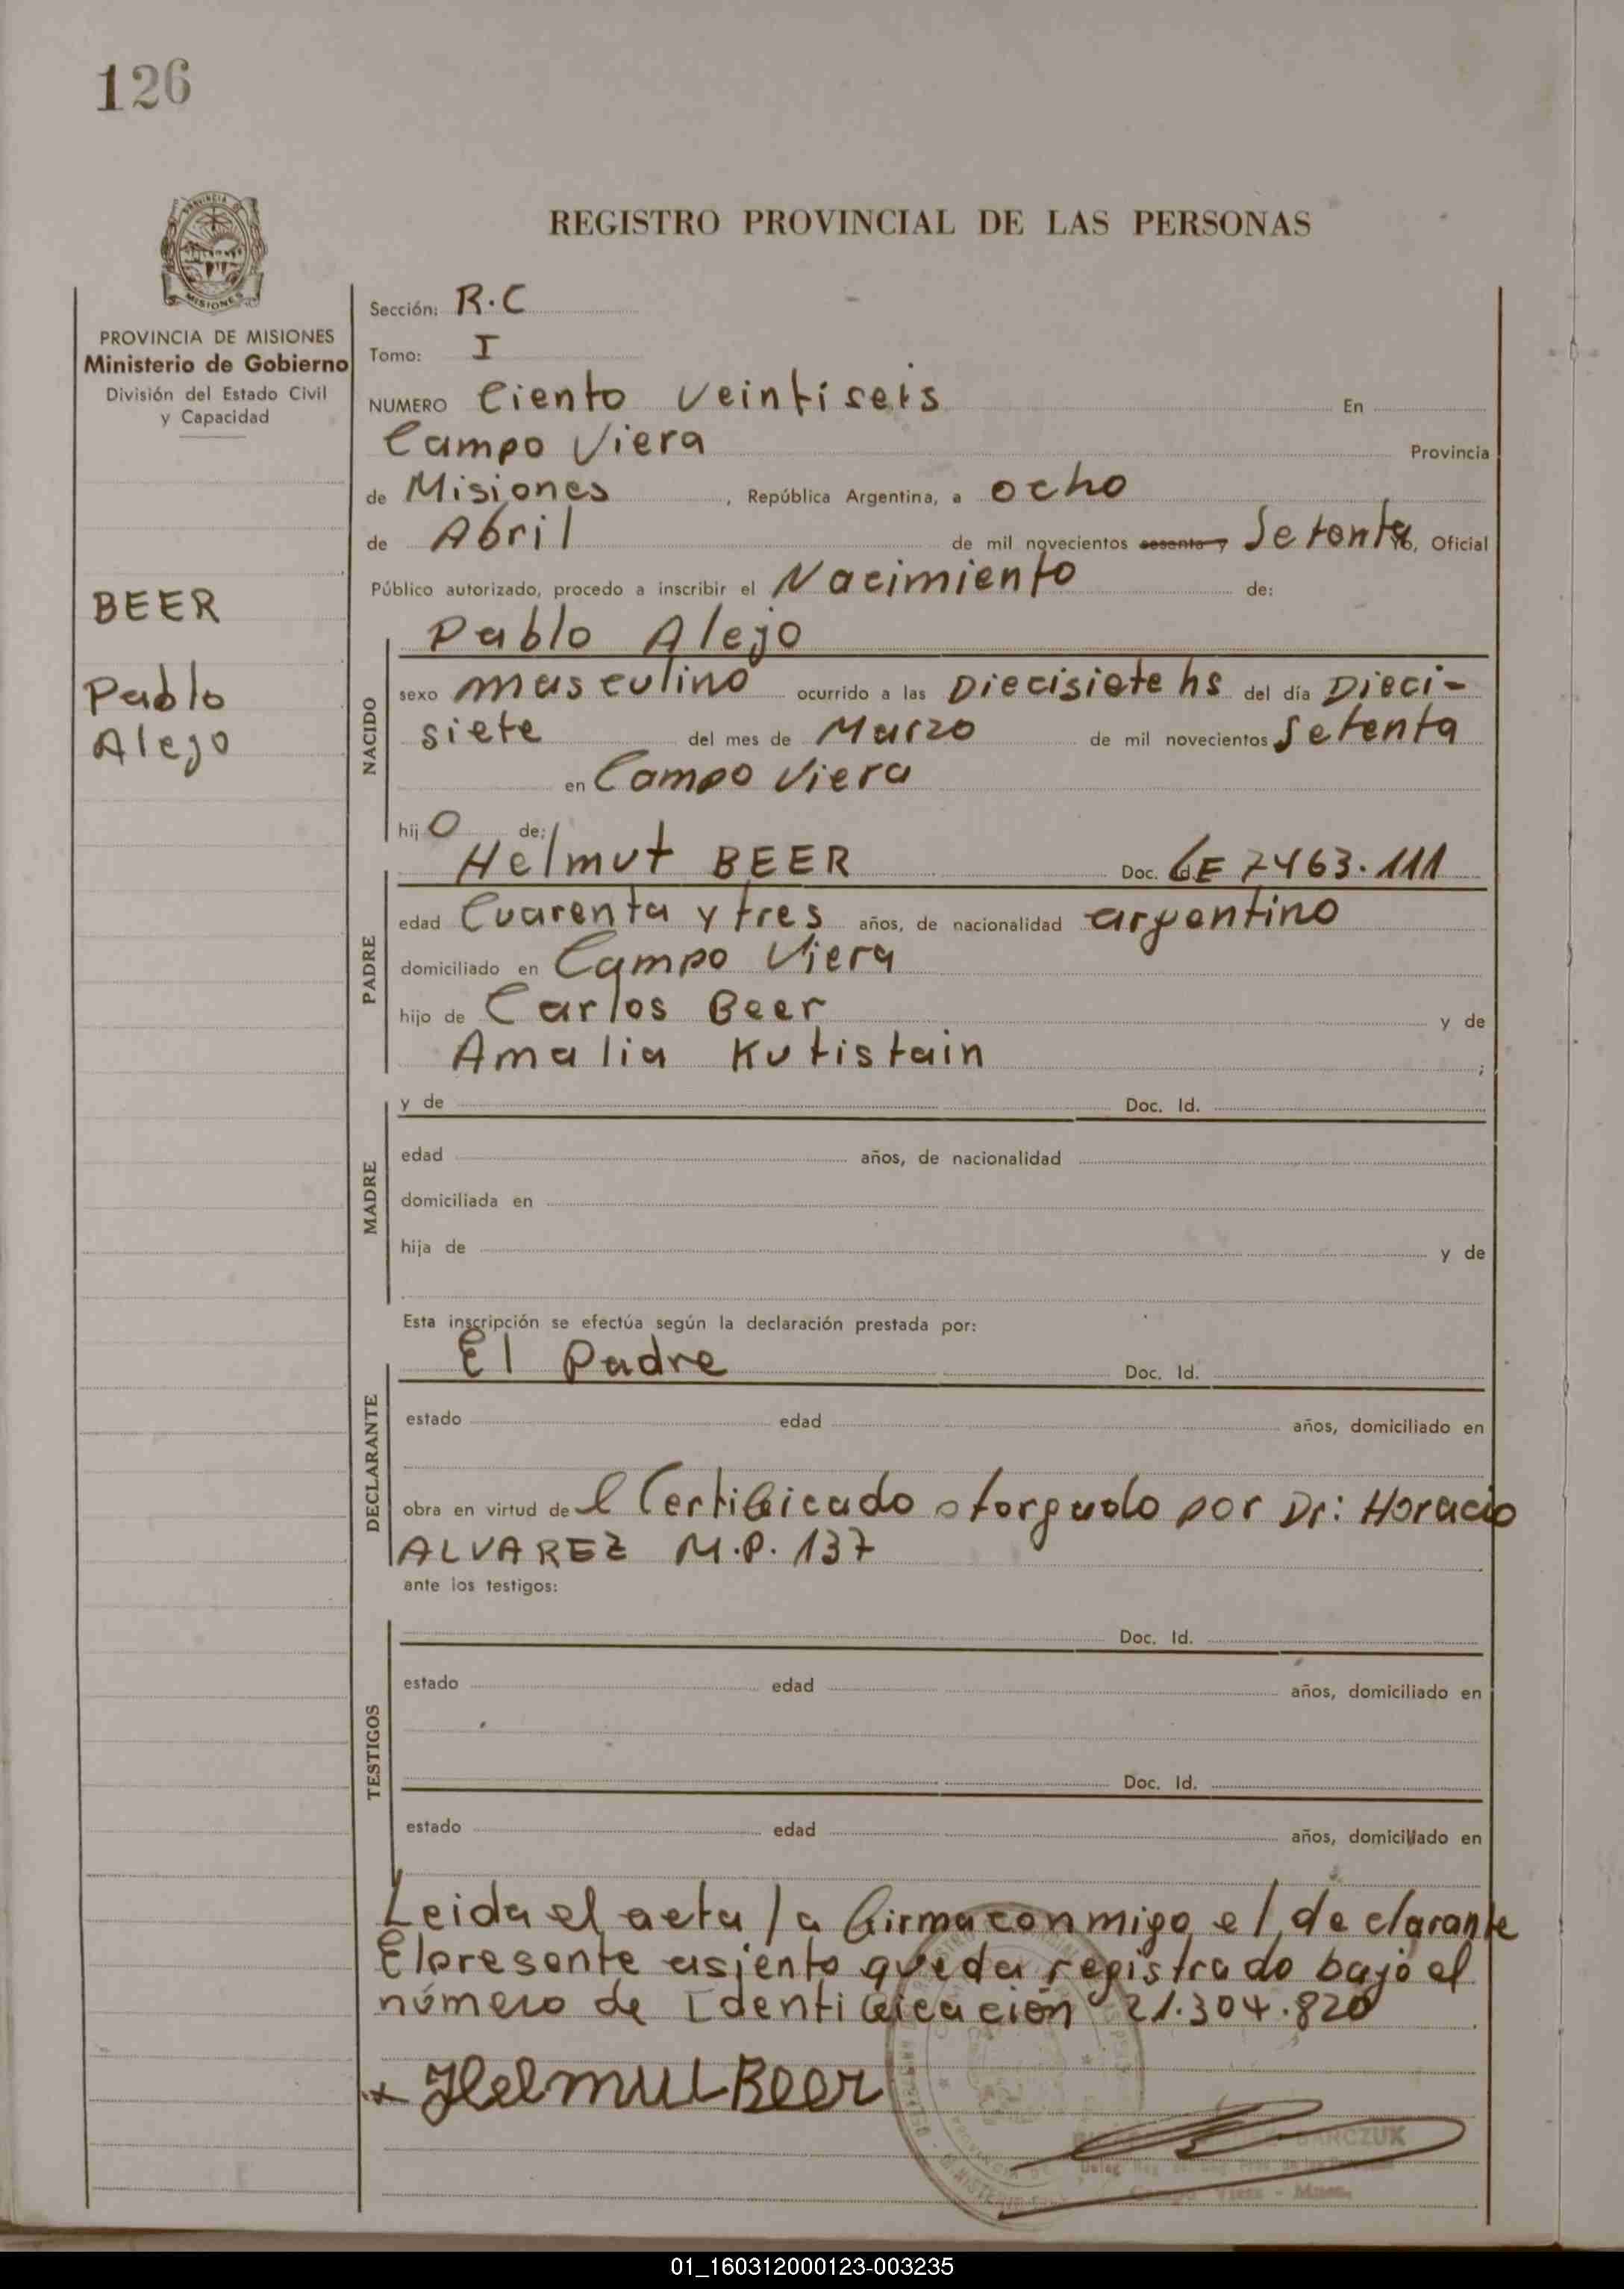 126
PROVINCIA DE MISIONES
Ministerio de Gobierno
División del Estado Civil
y Capacidad
BEER
Pablo
Alejo
REGISTRO PROVINCIAL DE LAS PERSONAS
Sección: R.C
Tomo: I
NUMERO Ciento veintiseis En
Campo Viera Provincia
de Misiones, República Argentina, a ocho
de Abril de mil novecientos sesenta y Setenta, Oficial
Público autorizado, procedo a inscribir el Nacimiento de:
Pablo Alejo
NACIDO
sexo masculino ocurrido a las Diecisiete hs del día Dieci-
siete del mes de Marzo de mil novecientos Setenta
en Campo Viera
hijo de:
Helmut BEER Doc. Id. LE 7463.111
PADRE
edad Cuarenta y tres años, de nacionalidad argentino
domiciliado en Campo Viera
hijo de Carlos Beer y de
Amalia Kutistain ;
MADRE
y de Doc. Id.
edad años, de nacionalidad
domiciliada en
hija de y de
Esta inscripción se efectúa según la declaración prestada por:
El Padre Doc. Id.
DECLARANTE
estado edad años, domiciliado en
obra en virtud del Certificado otorgado por Dr: Horacio
ALVAREZ M.P. 137
ante los testigos:
TESTIGOS
Doc. Id.
estado edad años, domiciliado en
Doc. Id.
estado edad años, domiciliado en
Leida el acta la firma conmigo el declarante
El presente asiento queda registrado bajo el
número de Identificación 21.304.820
x Helmut Beer
Campo Viera - Mnes.
01_160312000123-003235